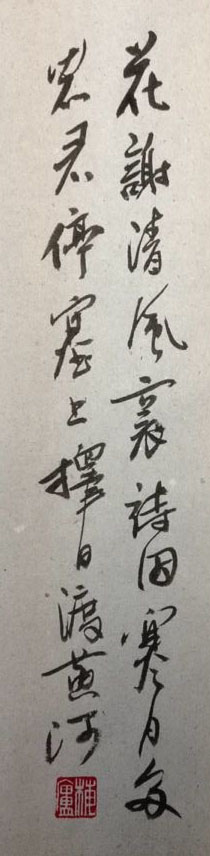 花謝清風裏詩因寒月多
君停塞上擇日渡黄河